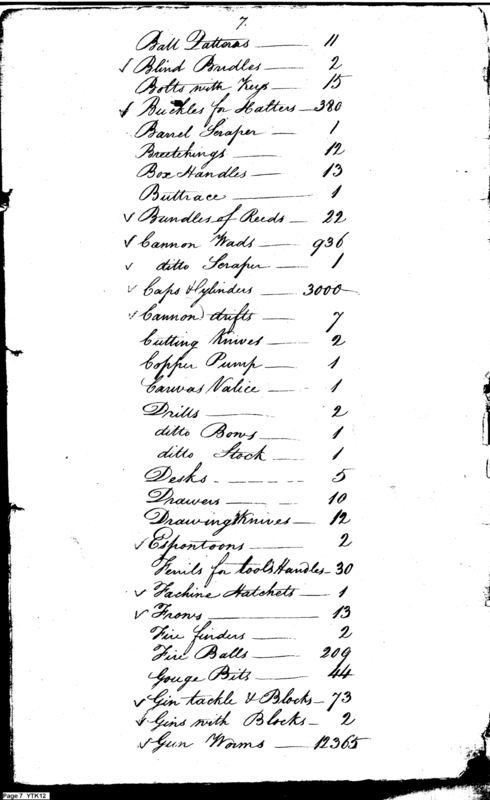 7.
Ball Patterns — 11
✓ Blind Bridles — 2
Bolts with Keys — 15
✓ Buckles for Halters — 380
Barrel Scraper — 1
Breetchings — 12
Box Handles — 13
Buttrace — 1
✓ Bundles of Reeds — 22
✓ Cannon Wads — 936
✓ ditto Scraper — 1
✓ Caps & Cylinders — 3000
✓ Cannon drifts — 7
Cutting Knives — 2
Copper Pump — 1
Canvas Valice — 1
Drills — 2
ditto Bows — 1
ditto Stock — 1
Desks — 5
Drawers — 10
Drawing Knives — 12
✓ Espontoons — 2
Feruls for tools Handles — 30
✓ Fachine Hatchets — 1
✓ Frows — 13
Fire finders — 2
Fire Balls — 209
Gouge Bits — 44
✓ Gin tackle & Blocks — 73
✓ Gins with Blocks — 2
✓ Gun Worms — 12365
Page 7 YTK12